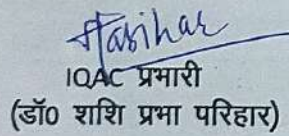 Parihar
IQAC प्रभारी
(डॉ0 शशि प्रभा परिहार)